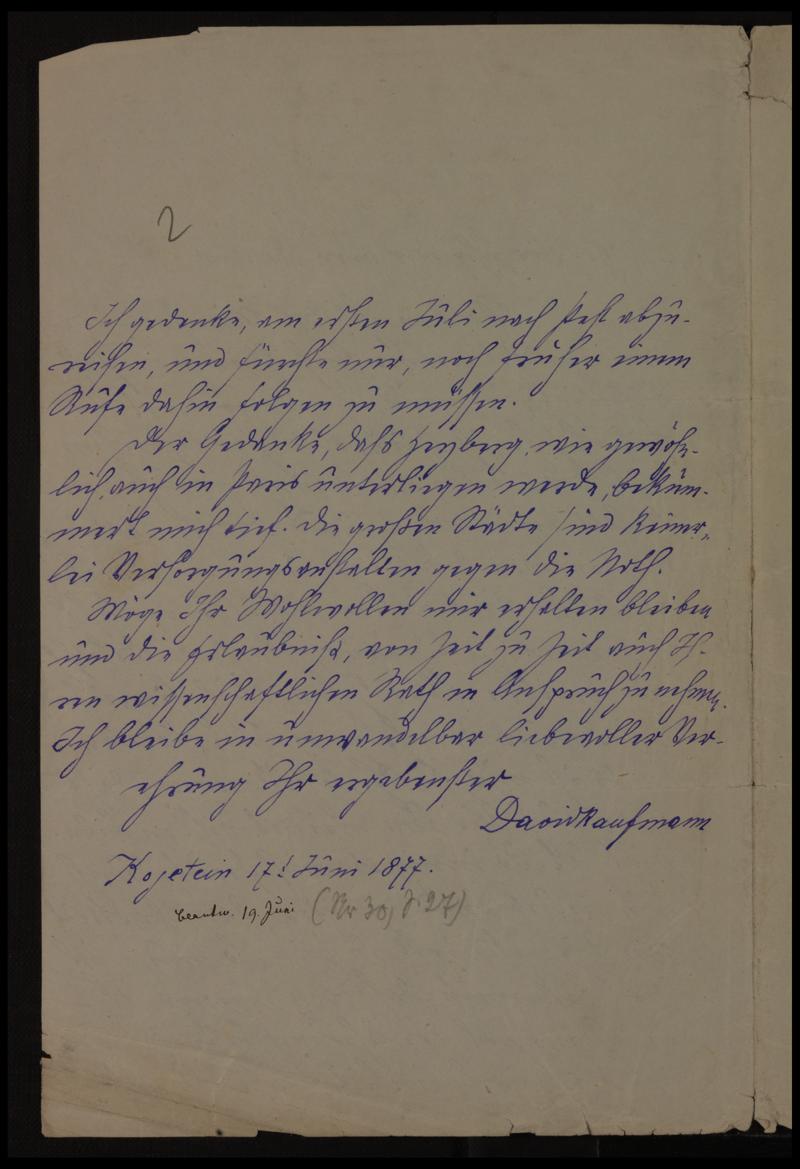 2
Ich gedenke, am ersten Juli nach Pest abzu-
reisen, und fürchte nur, noch früher einem
Rufe dahin folgen zu müssen.
Der Gedanke, daſs Herzberg, wie gewöhn-
lich, auch in Paris unterliegen werde, beküm-
mert mich tief. Die großen Städte sind keiner-
lei Versorgungsanstalten gegen die Noth.
Möge Ihr Wohlwollen mir erhalten bleiben
und die Erlaubniß, von Zeit zu Zeit auch Ih-
ren wissenschaftlichen Rath in Anspruch zu nehmen.
Ich bleibe in unwandelbar liebevoller Ver-
ehrung Ihr ergebenster
David Kaufmann
Kojetein 17t Juni 1877.
beantw. 19. Juni (Nr 30, S. 27)